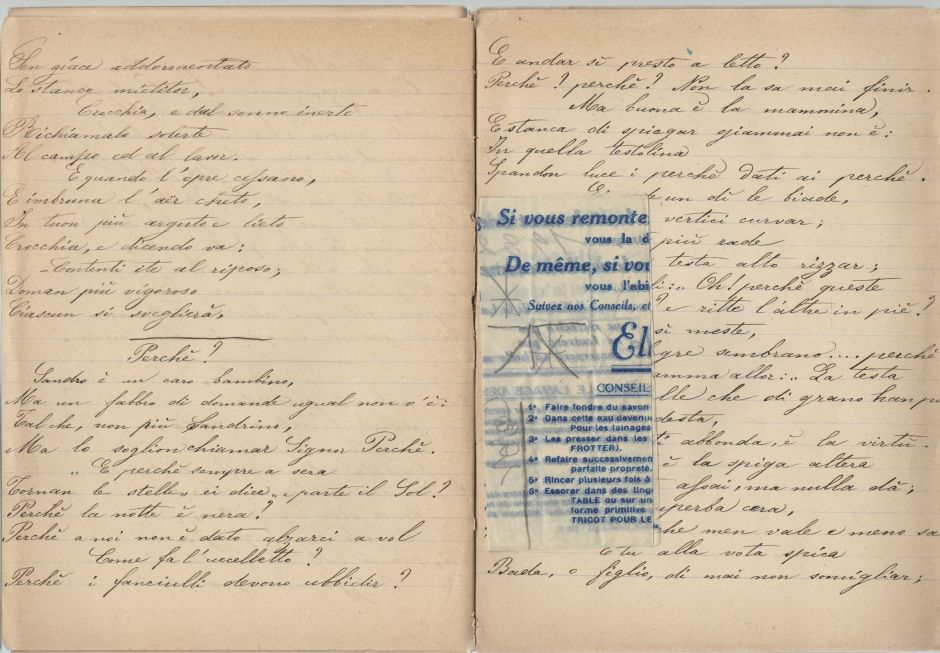 Sen giace addormentato
Lo stanco mietitor,
Crocchia, e dal sonno inerte
Richiamalo solerte
Al campo ed al lavor.
E quando l'opre cessano,
E imbruna l'aër cheto,
In tuon più arguto e lieto
Crocchia, e dicendo va:
Contenti ite al riposo;
Doman più vigoroso
Ciascun si sveglierà,
Perchè?
Sandro è un caro bambino,
Ma un fabbro di domande ugual non v'è:
Tal che, non più Sandrino,
Ma lo soglion chiamar Signor Perchè.
„ E perchè sempre a sera
Tornan le stelle„ ei dice„ e parte il Sol?
Perchè la notte è nera?
Perchè a noi non è dato alzarci a vol
Come fa l'uccelletto?
Perchè i fanciulli devono ubbidir?
E andar sì presto a letto?
Perchè? perchè? Non la sa mai finir.
Ma buona è la mammina,
E stanca di spiegar giammai non è:
In quella testolina
Spandon luce i perchè dati ai perchè.
E
un dì le biade,
vertici curvar;
più rade
testa alto rizzar;
li:„ Oh! perchè queste
e ritte l'altre in piè?
sì meste,
gre sembrano.... perchè
amma allor:„ La testa
lle che di grano han più
desta,
è abbonda, è la virtù.
è la spiga altera
assai, ma nulla dà;
uperba cera,
che men vale e meno sa
E tu alla vota spica
Bada, o figlio, di mai non somigliar;
Si vous remonte
vous la d
De même, si vou
vous l'abi
Suivez nos Conseils, et
El
CONSEIL
1° Faire fondre du savon
2° Dans cette eau devenu
Pour les lainages
3° Les presser dans les
FROTTER).
4° Refaire successivemen
parfaite propreté.
5° Rincer plusieurs fois à
6° Essorer dans des ling
TABLE ou sur un
forme primitive
TRICOT POUR LE